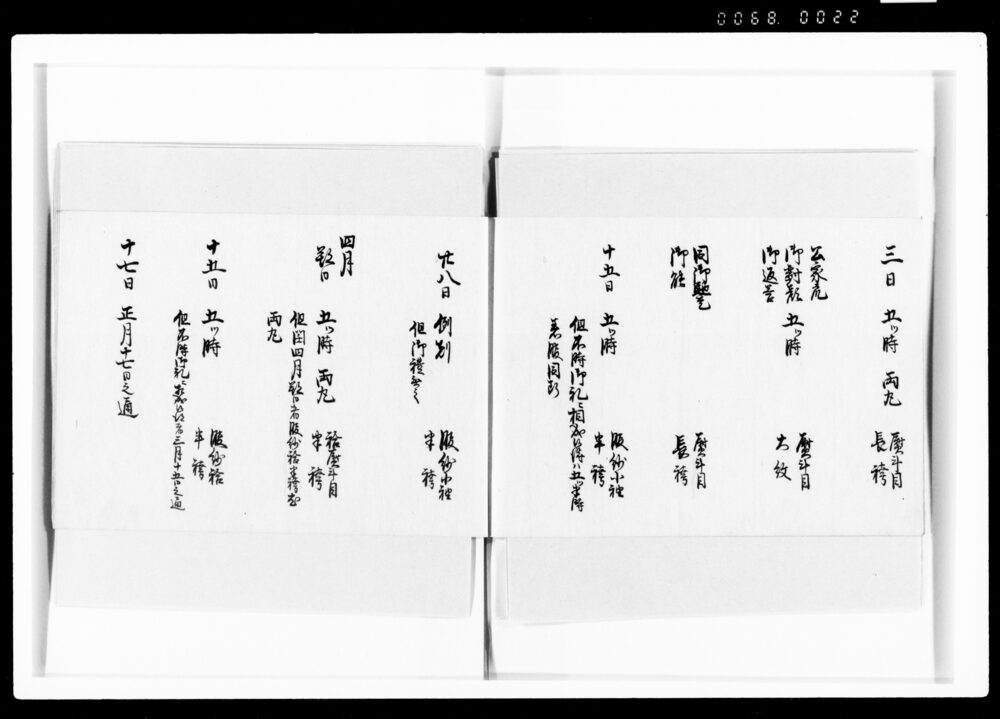 0068. 0022
三日 五ツ時 両丸 熨斗目
長袴
公家衆
御対顔 五ツ時 熨斗目
御返答 大紋
同御馳走 熨斗目
御能 長袴
十五日 五ツ時 服紗小袖
半袴
但不時御礼ニ相成候得ハ五ツ半時
着服同断
廿八日 例刻 服紗小袖
但御礼無之 半袴
四月
朔日 五ツ時 両丸 袷熨斗目
半袴
但閏四月朔日者服紗袷半袴
両丸
十五日 五ツ時 服紗袷
半袴
但不時御礼ニ相成候得者三月十五日之通
十七日 正月十七日之通